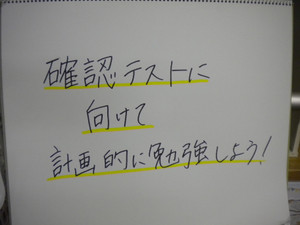 確認テストに
向けて
計画的に勉強しよう!